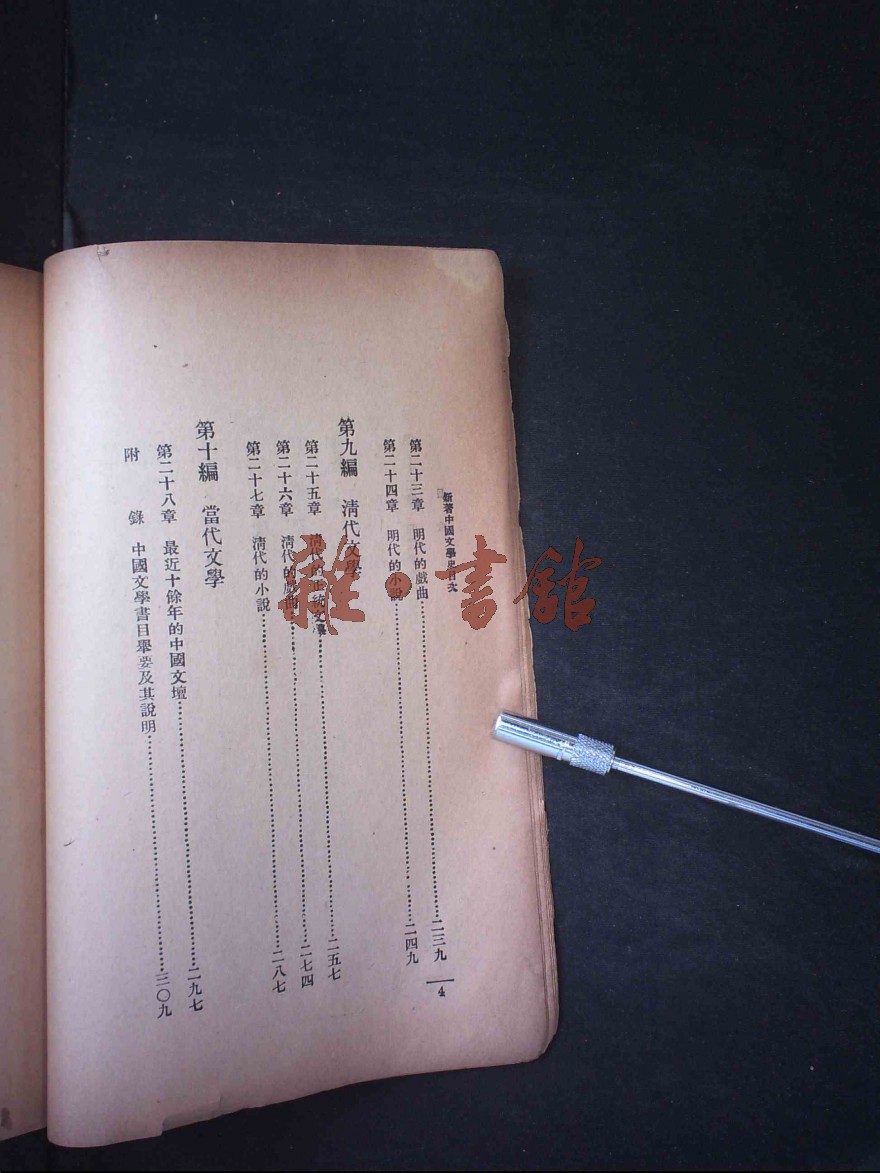 新著中國文學史目次
4
第二十三章　明代的戲曲……二三九
第二十四章　明代的小說……二四九
第九編　清代文學
第二十五章　清代的正統文學……二五七
第二十六章　清代的戲曲……二七四
第二十七章　清代的小說……二八七
第十編　當代文學
第二十八章　最近十餘年的中國文壇……二九七
附　錄　中國文學書目舉要及其說明……三〇九
雜·書館